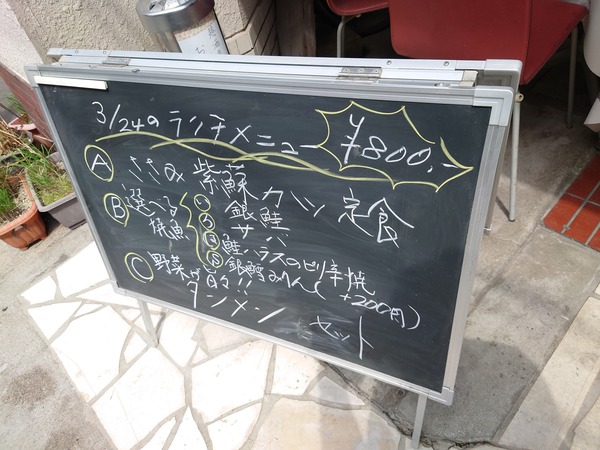 3/24のランチメニュー ¥800.-
A ささみ 紫蘇カツ定食
B 選べる焼魚
銀鮭
サバ
鮭ハラスのピリ辛焼
銀鱈みりん(+200円)
C 野菜が
タンメン セット